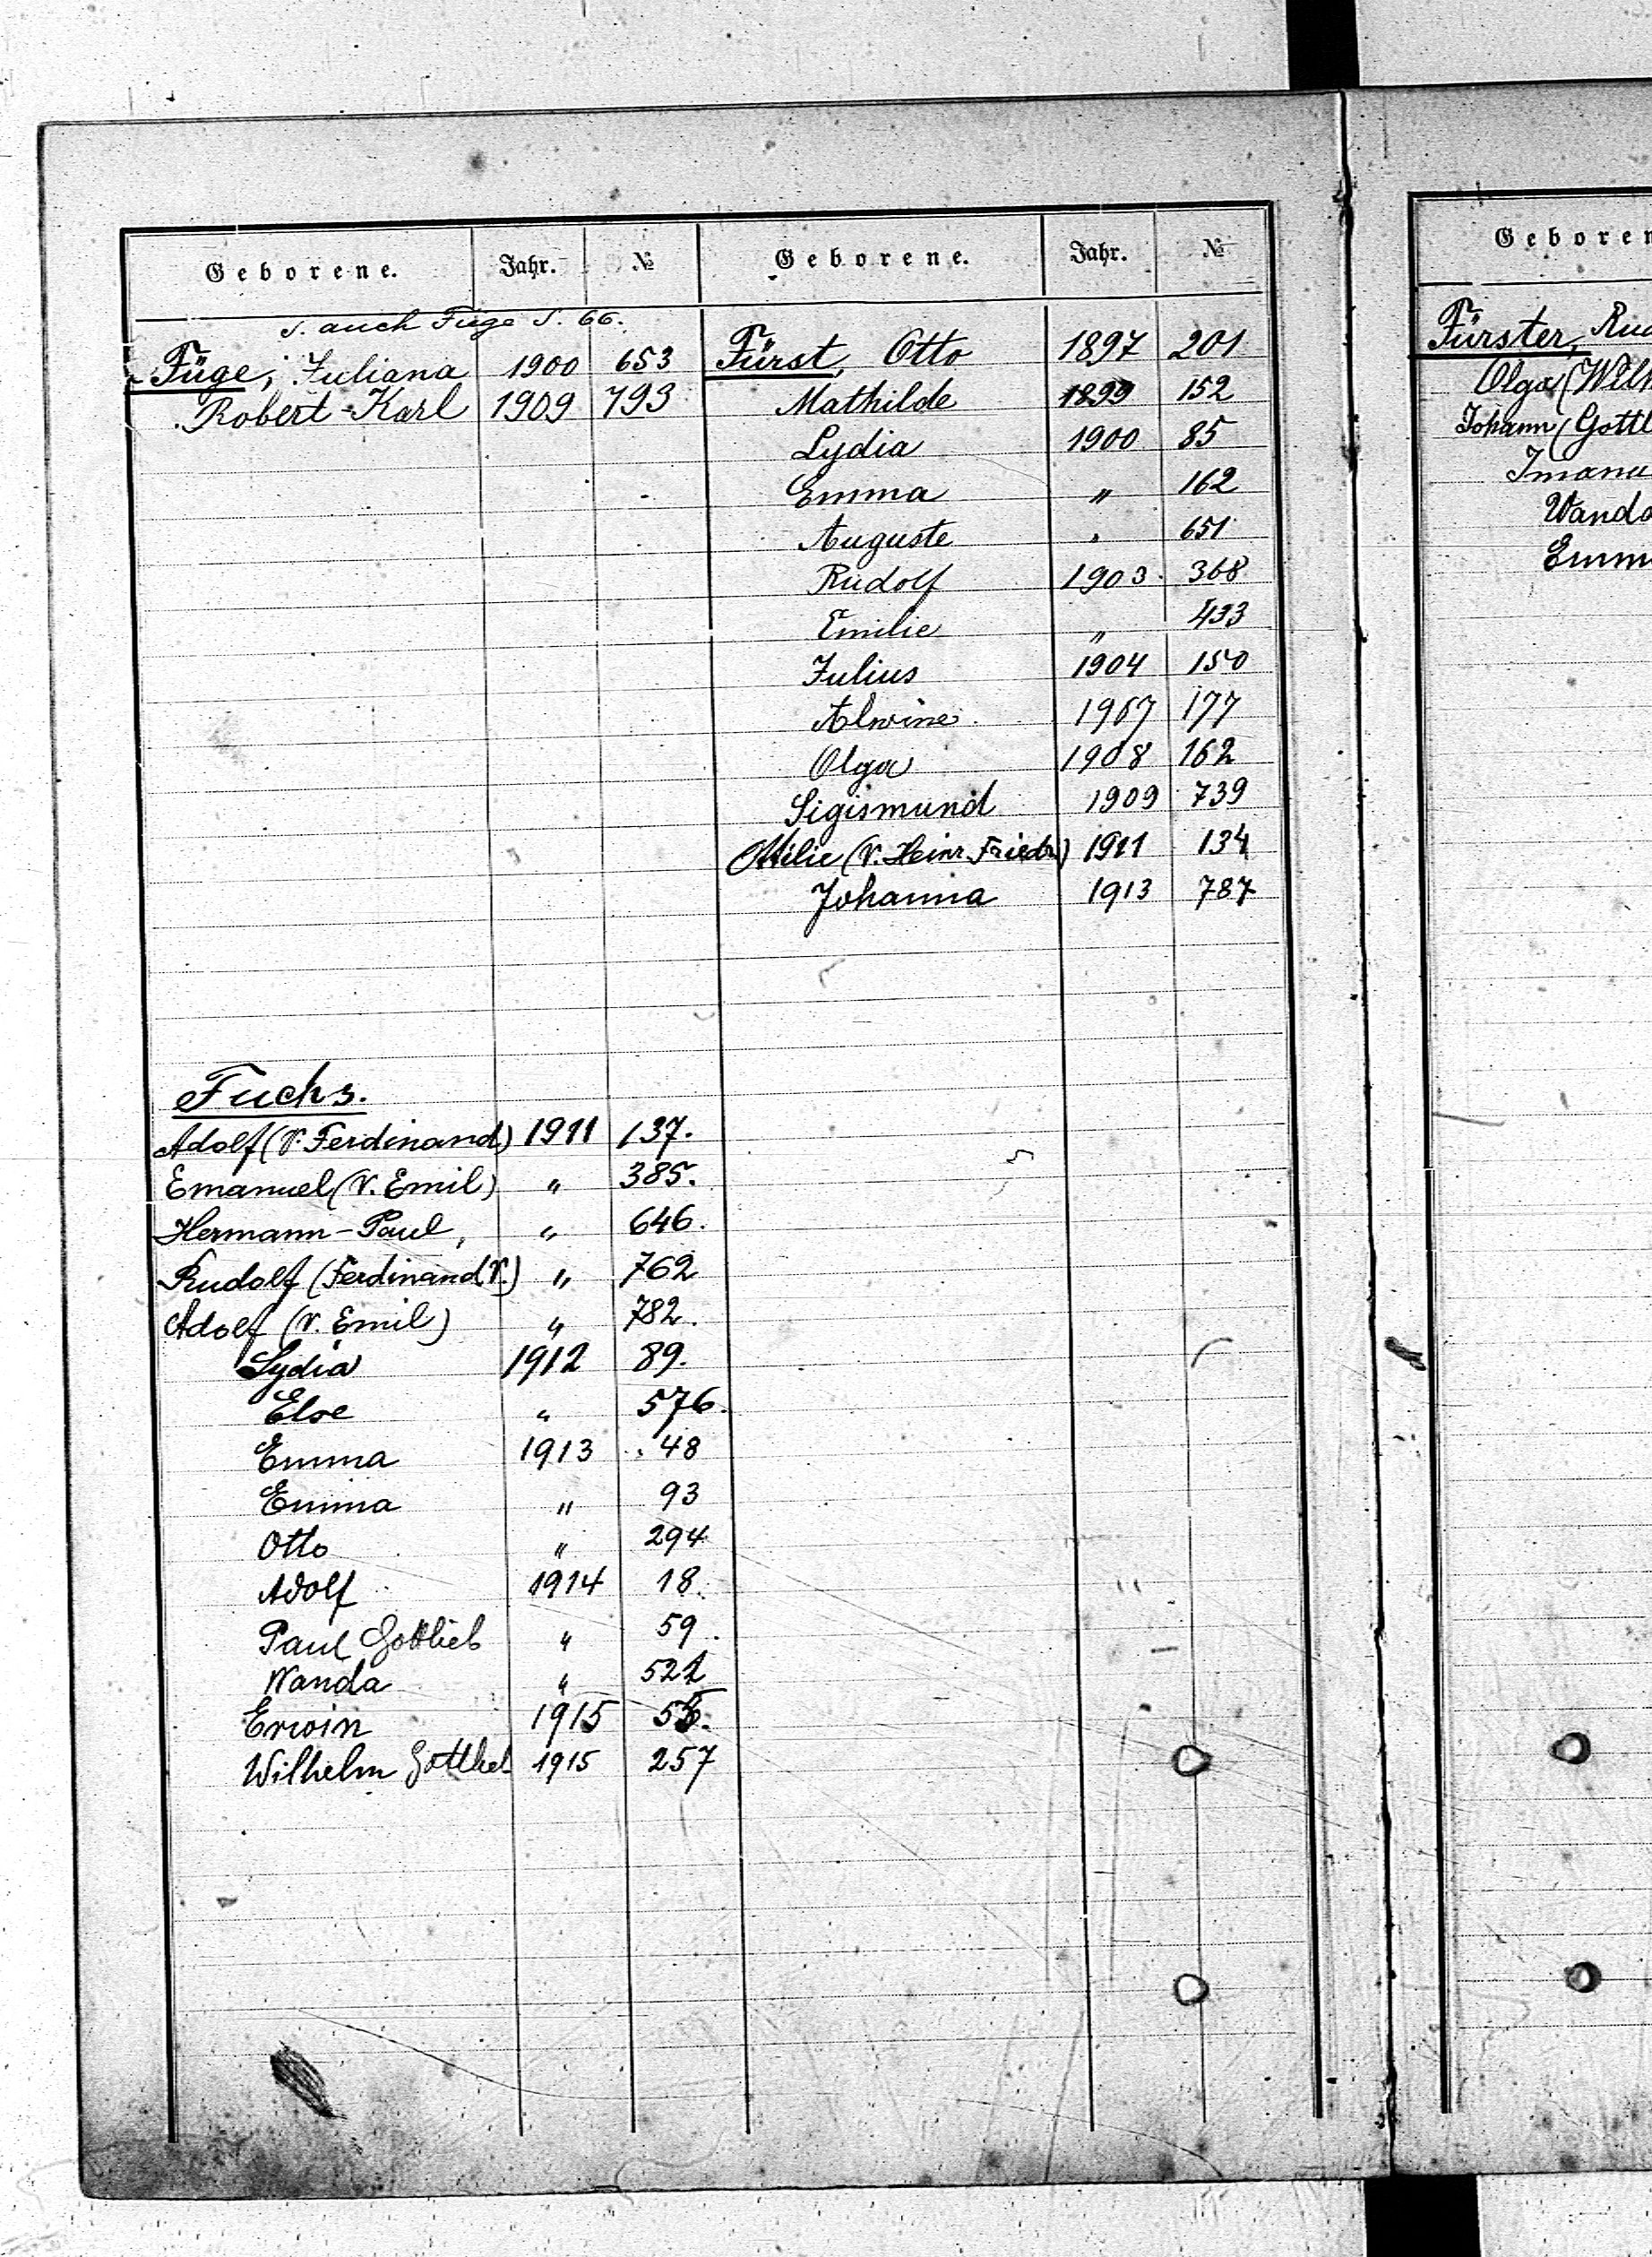 Geborene. Jahr. №
s. auch Fuge S. 66.
Füge, Juliana 1900 653
Robert-Karl 1909 793
Fuchs.
Adolf (V. Ferdinand) 1911 137.
Emanuel (V. Emil) " 385.
Hermann-Paul, " 646.
Rudolf (Ferdinand V.) " 762
Adolf (V. Emil) " 782.
Lydia 1912 89.
Else " 576.
Emma 1913 48
Emma " 93
Otto " 294
Adolf 1914 18.
Paul Gottlieb " 59.
Wanda " 522
Erwin 1915
Wilhelm Gottlieb 1915 257
Geborene. Jahr. №
Fürst, Otto 1897 201
Mathilde 1899 152
Lydia 1900 85
Emma " 162
Auguste " 651
Rudolf 1903 368
Emilie " 433
Julius 1904 150
Alwine 1907 177
Olga 1908 162
Sigismund 1909 739
Ottilie (V. Heinr. Friedr.) 1911 134
Johanna 1913 787
Geboren
Fürster, Rud
Olga (Wilh
Johann (Gottl
Imanu
Wanda
Emm